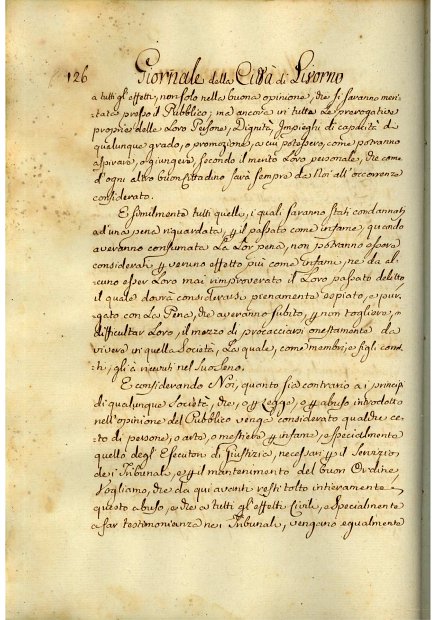 126 Giornale della Città di Livorno
a tutti gl'effetti, non solo nella buona opinione, che si saranno meri-
tata presso il Pubblico; ma ancora in tutte le prerogative
proprie delle Loro Persone, Dignità, Impieghi di capacità di
qualunque grado, o promozione, a cui potessero, come potranno
aspirare, o giungere, secondo il merito Loro personale, che come
d'ogni altro buon Cittadino sarà sempre da Noi all'occorrenze
considerato.
E similmente tutti quelli, i quali saranno stati condannati
ad una pena riguardata, per il passato come infame, quando
averanno consumata La Lor pena, non potranno essere
considerati per veruno effetto più come Infami, nè da al-
cuno esser Loro mai rimproverato il Loro passato delitto,
il quale dovrà considerarsi pienamente espiato, e pur-
gato con La Pena, che averanno subito, per non togliere, o
difficultar Loro, il mezzo di procacciarsi onestamente da
vivere in quella Società, La quale, come membri, e figli
gli à ricevuti nel suo seno.
E considerando Noi, quanto sia contrario a i principj
di qualunque Società, che, o per Legge, o per abuso introdotto
nell'opinione del Pubblico venga considerato qualche ce-
to di persone, o arte, o mestiere per infame, e specialmente
quello degl'Esecutori di Giustizia, necessarj per il Servizio
de i Tribunali, e per il mantenimento del buon Ordine,
Vogliamo, che da qui avanti resti tolto intieramente
questo abuso, e che a tutti gl'effetti Civili, e Specialmente
a far testimonianza ne i Tribunali, vengano egualmente